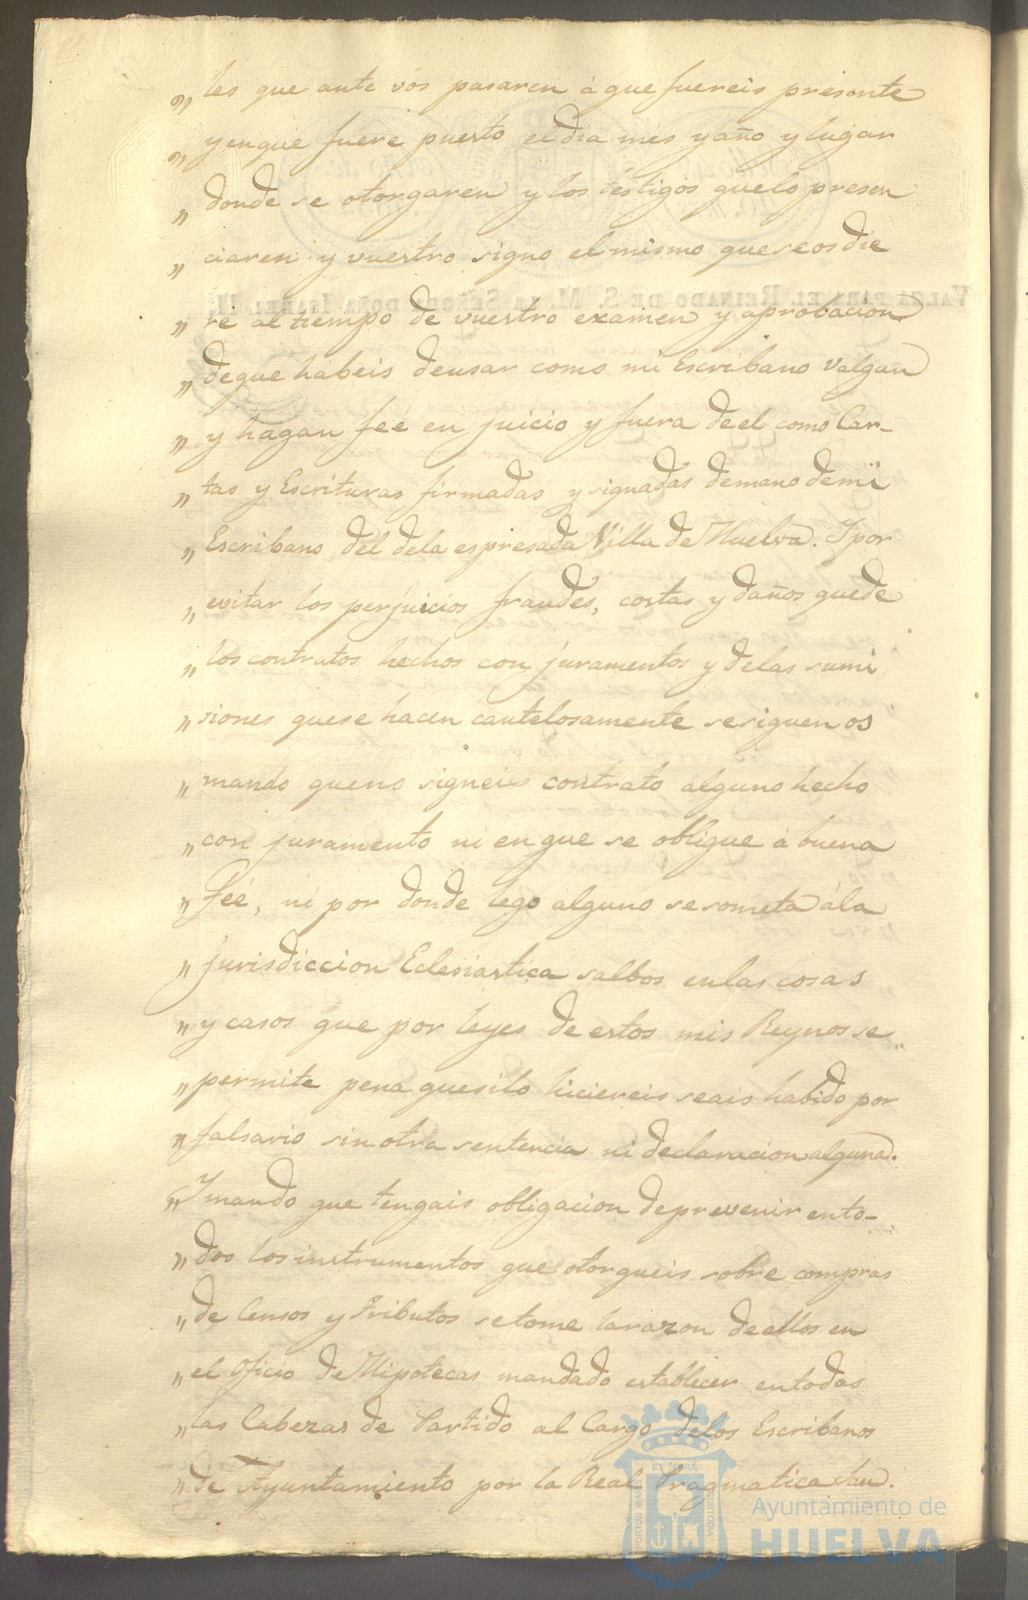 „ les que ante vos pasaren á que fuereis presente
„ y enque fuere puesto el dia mes y año y lugar
„ donde se otorgaren y los testigos quelo presen
„ ciaren y vuestro signo el mismo que se os die
„ re al tiempo de vuestro examen y aprobacion
„ deque habeis deusar como mi Escribano valgan
„ y hagan feé en juicio y fuera de el como Car-
„ tas y Escrituras firmadas y signadas demano demi
„ Escribano del dela espresada Villa de Huelva. Y por
„ evitar los perjuicios fraudes, costas y daños quede
„ los contratos hechos con juramentos y delas sumi
„ siones quese hacen cautelosamente se siguen os
„ mando queno signeis contrato alguno hecho
„ con juramento ni en que se obligue á buena
„ feé, ni por donde lego alguno se someta ála
„ jurisdiccion Eclesiastica salbos enlas cosas
„ y casos que por leyes de estos mis Reynos se
„ permite pena quesilo hiciereis seais habido por
„ falsario sin otra sentencia ni declaracion alguna.
„ Y mando que tengais obligacion deprevenir ento-
„ dos los instrumentos que otorgueis sobre compras
„ de Censos y Tributos setome larazon deellos en
„ el Oficio de Hipotecas mandado establecer entodas
„ las Cabezas de Partido al Cargo delos Escribanos
„ de Ayuntamiento por la Real Pragmatica San.
VALGA PARA EL REINADO DE S. M. LA SEÑORA DOÑA ISABEL II.
Ayuntamiento de
HUELVA